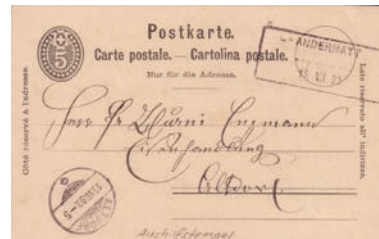 Postkarte.
Carte postale. — Cartolina postale.
Nur für die Adresse.
5
ANDERMATT
Côté réservé à l'adresse.
Lato riservato all' indirizzo.
Herr
Eisenhandlung
Altdorf
ALTDORF
Aushilfsstempel